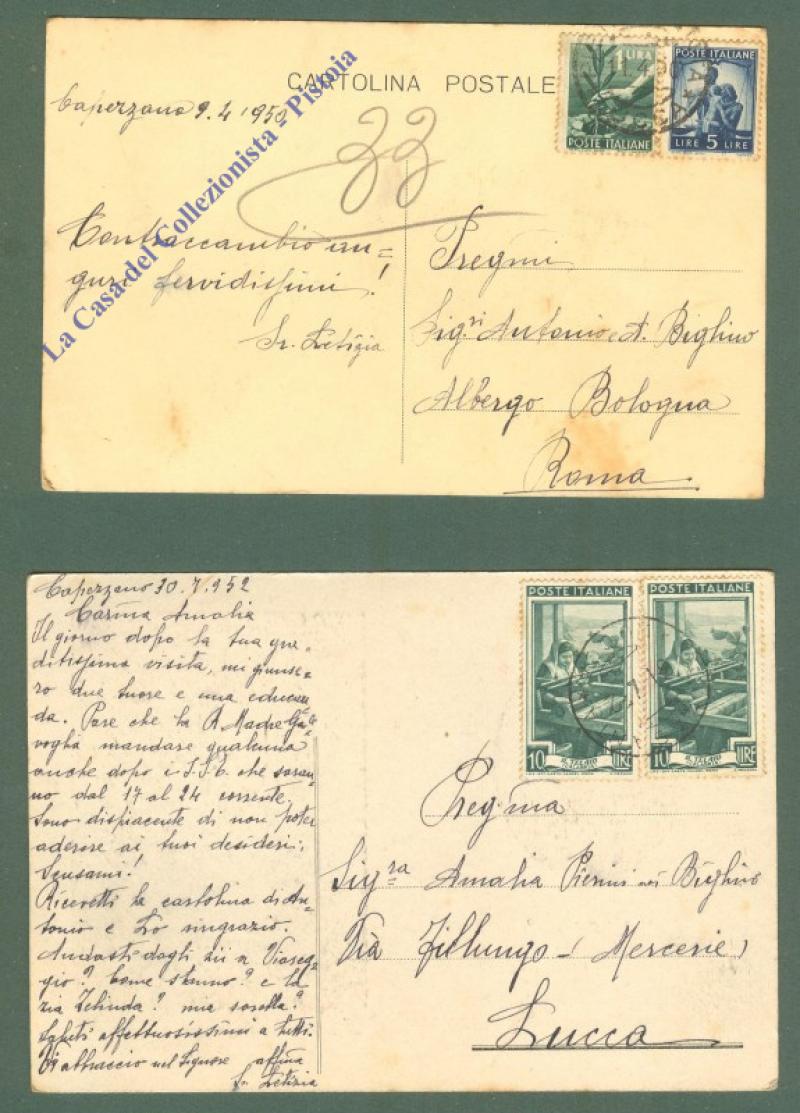 CARTOLINA POSTALE
La Casa del Collezionista - Pistoia
1 LIRA
POSTE ITALIANE
POSTE ITALIANE
LIRE 5 LIRE
Caperzano 9.4.1950
33
Contraccambio au=
guri fervidissimi!
Sr. Letizia
Pregmi
Sigri Antonio e A. Biglino
Albergo Bologna
Roma
POSTE ITALIANE
10 LIRE
POSTE ITALIANE
10 LIRE
Caperzano 30.7.952
Carima Amalia
Il giorno dopo la tua gra.
ditissima visita, mi giunse=
ro due suore e una educan
da. Pare che la R. Madre Gle
voglia mandare qualcuna
anche dopo i S.S.E. che saran
no dal 17 al 24 corrente.
Sono dispiacente di non poter
aderire ai tuoi desideri.
Scusami!
Ricevetti la cartolina di An=
tonio e Lo ringrazio.
Andasti dagli zii a Viareg
gio? Come stanno? e la
zia Zelinda? mia sorella?
Saluti affettuosissimi a tutti.
Vi abbraccio nel Signore affma
Sr. Letizia
Pregma
Sigra Amalia Pierini nei Biglino
Via Fillungo - (Mercerie)
Lucca